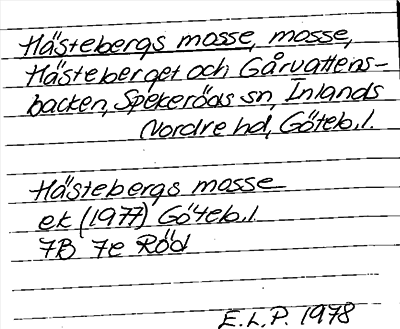 Hästebergs mosse, mosse,
Hästeberget och Gårvattens-
backen, Spekeröds sn, Inlands
Nordre hd, Göteb. l.
Hästebergs mosse
ek (1977) Göteb. l.
7B 7e Röd
E.L.P. 1978